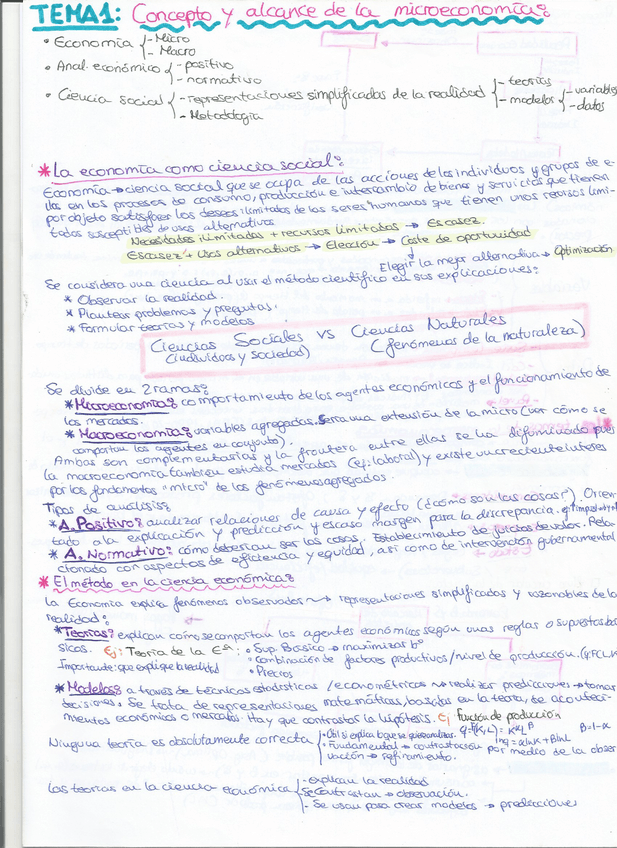 TEMA 1: Concepto y alcance de la microeconomía:
• Economía { - Micro
- Macro
• Anal. económico { - positivo
- normativo
• Ciencia social { - representaciones simplificadas de la realidad { - teorías
- modelos { - variables
- datos
- Metodología
* La economía como ciencia social:
Economía → ciencia social que se ocupa de las acciones de los individuos y grupos de e-
llos en los procesos de consumo, producción e intercambio de bienes y servicios que tienen
por objeto satisfacer los deseos ilimitados de los seres humanos que tienen unos recursos limi-
tados susceptibles de usos alternativos
Necesidades ilimitadas + recursos limitados → Escasez.
Escasez + Usos alternativos → Elección → Coste de oportunidad
Elegir la mejor alternativa → Optimización
Se considera una ciencia al usar el método científico en sus explicaciones:
* Observar la realidad.
* Plantear problemas y preguntas.
* Formular teorías y modelos
Ciencias Sociales vs Ciencias Naturales
(individuos y sociedad) (fenómenos de la naturaleza)
Se divide en 2 ramas:
* Microeconomía: comportamiento de los agentes económicos y el funcionamiento de
los mercados.
* Macroeconomía: variables agregadas. Sería una extensión de la micro (ver cómo se
comportan los agentes en conjunto).
Ambas son complementarias y la frontera entre ellas se ha difuminado pues
la macroeconomía también estudia mercados (ej: laboral) y existe un creciente interés
por los fundamentos "micro" de los fenómenos agregados.
Tipos de análisis:
* A. Positivo: analizar relaciones de causa y efecto (¿cómo son las cosas?). Orien-
tado a la explicación y predicción y escaso margen para la discrepancia.
* A. Normativo: cómo deberían ser las cosas. Establecimiento de juicios de valor. Rela-
cionado con aspectos de eficiencia y equidad, así como de intervención gubernamental
* El método en la ciencia económica:
La Economía explica fenómenos observados → representaciones simplificadas y razonables de la
realidad:
* Teorías: explican cómo se comportan los agentes económicos según unas reglas o supuestos bá-
sicos. Ej: Teoría de la Eª: • Sup. Básico → maximizar bº
Importante: que explique la realidad • Combinación de factores productivos/nivel de producción.
• Precios
* Modelos: a través de técnicas estadísticas / econométricas → realizar predicciones → tomar
decisiones. Se trata de representaciones matemáticas, basadas en la teoría, de aconteci-
mientos económicos o mercados. Hay que contrastar la hipótesis. Ej Función de producción
Ninguna teoría es absolutamente correcta { • Útil si explica lo que se quiere analizar. B=1-α
• Fundamental → contrastación por medio de la obser-
vación → refinamiento.
Las teorías en la ciencia económica { - explican la realidad
- Se contrastan → observación.
- Se usan para crear modelos → predicciones